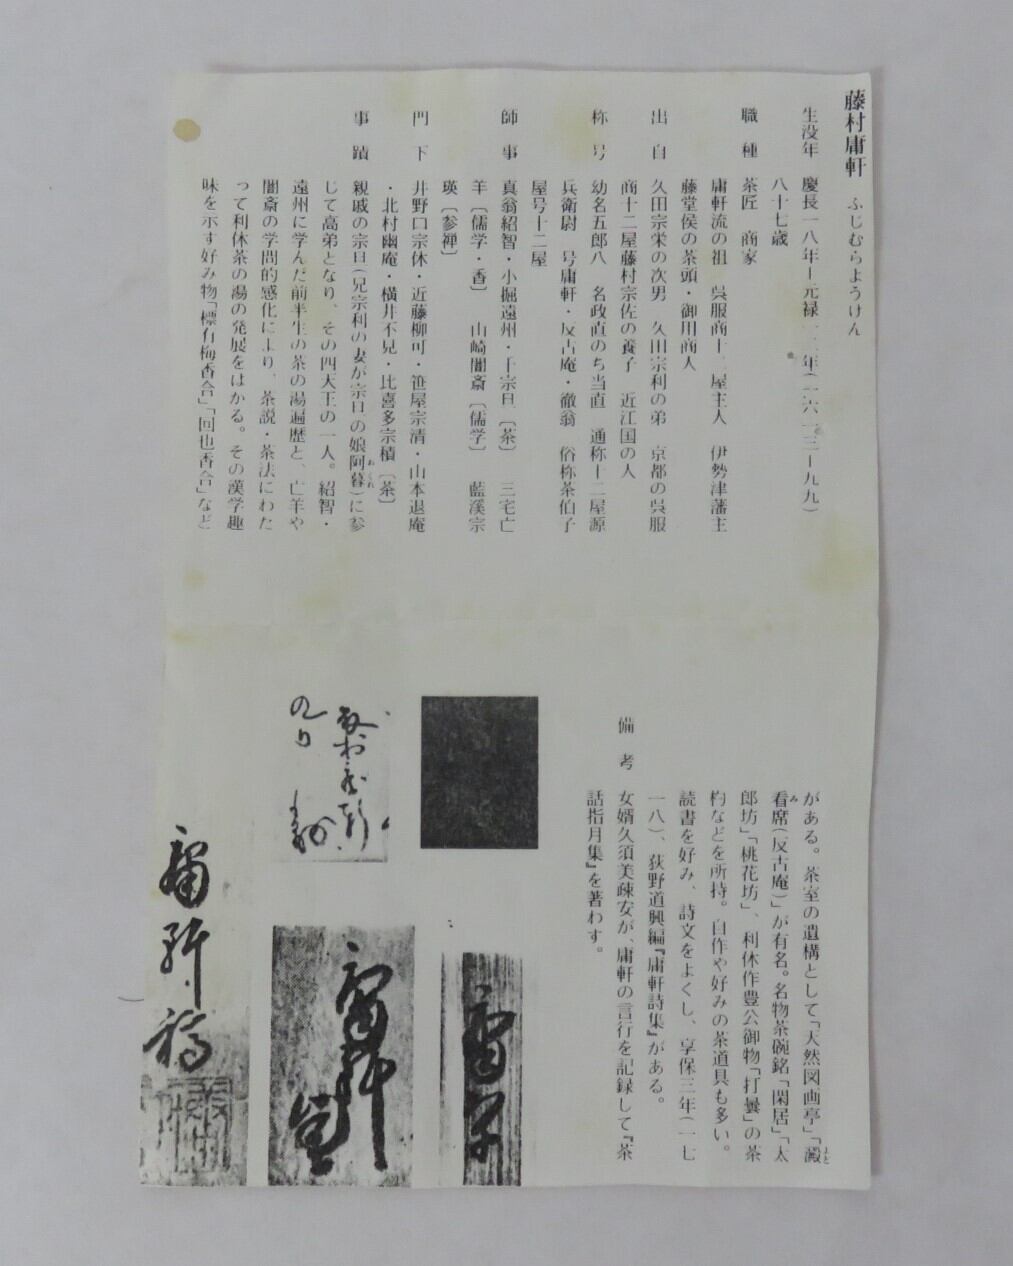 藤村庸軒 ふじむらようけん
生没年 慶長一八年―元禄一二年(一六一三―九九)
八十七歳
職種 茶匠 商家
庸軒流の祖 呉服商十二屋主人 伊勢津藩主
藤堂侯の茶頭・御用商人
出自 久田宗栄の次男 久田宗利の弟 京都の呉服
商十二屋藤村宗佐の養子 近江国の人
称号 幼名五郎八 名政直のち当直 通称十二屋源
兵衛尉 号庸軒・反古庵・徹翁 俗称茶伯子
屋号十二屋
師事 真翁紹智・小掘遠州・千宗旦〔茶〕 三宅亡
羊〔儒学・香〕 山崎闇斎〔儒学〕 藍溪宗
瑛〔参禅〕
門下 井野口宗休・近藤柳可・笹屋宗清・山本退庵
・北村幽庵・横井不見・比喜多宗積〔茶〕
事蹟 親戚の宗旦(兄宗利の妻が宗旦の娘阿暮)に参
じて高弟となり、その四天王の一人。紹智・
遠州に学んだ前半生の茶の湯遍歴と、亡羊や
闇斎の学問的感化により、茶説・茶法にわた
って利休茶の湯の発展をはかる。その漢学趣
味を示す好み物「標有梅香合」「回也香合」など
がある。茶室の遺構として「天然図画亭」「澱
看席(反古庵)」が有名。名物茶碗銘「閑居」「太
郎坊」「桃花坊」、利休作豊公御物「打曇」の茶
杓などを所持。自作や好みの茶道具も多い。
備考 読書を好み、詩文をよくし、享保三年(一七
一八)、荻野道興編『庸軒詩集』がある。
女婿久須美疎安が、庸軒の言行を記録して『茶
話指月集』を著わす。
庸軒